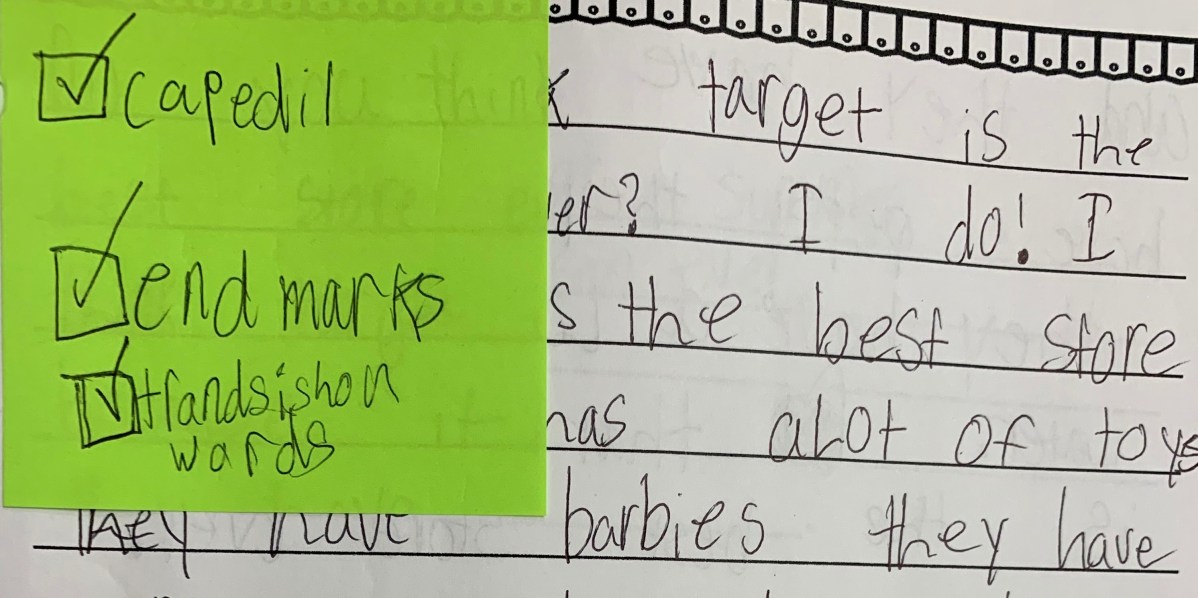 capedil
end marks
trandsishon
wards
target is the
er? I do! I
s the best store
has alot of toys
They have barbies they have